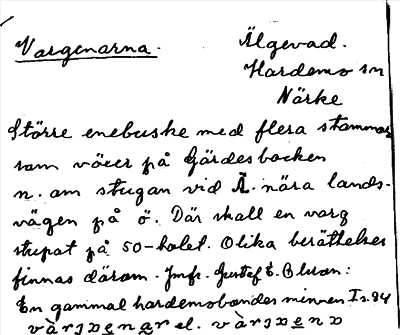 Vargenarna.
Älgevad.
Hardemo sn
Närke
Större enebuske med flera stammar
som växer på Gärdesbacken
n. om stugan vid Ä. nära lands-
vägen på ö. Där skall en varg
stupat på 50-talet. Olika berättelser
finnas därom. Jmfr. Gustaf E. Olsson:
En gammal hardemobondes minnen I s. 84